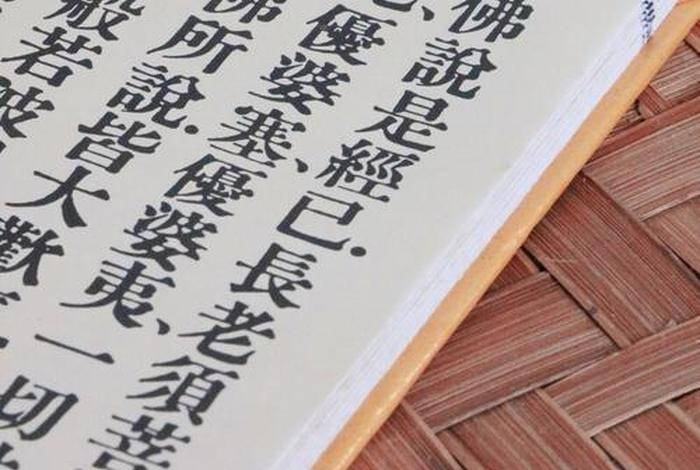 佛說是經已.長老須菩
、優婆塞、優婆夷、一切
佛所說.皆大歡
般若波